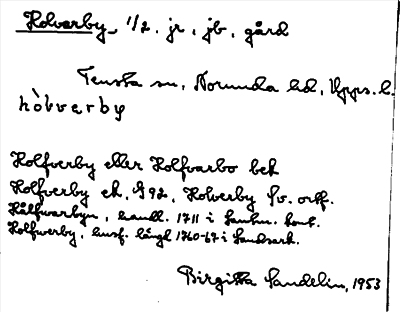 Holverby, 1/2. jr, jb, gård
Tensta sn, Norunda hd, Upps. l.
hòlvverby
Holfverby eller Holfvarbo bek
Holfverby ek. 892, Holverby Sv. ortf.
Hålfwarbyn, handl. 1711 i Landsm. kont.
Holfwerby, husf. längd 1760-67 i Landsark.
Birgitta Sandelin, 1953